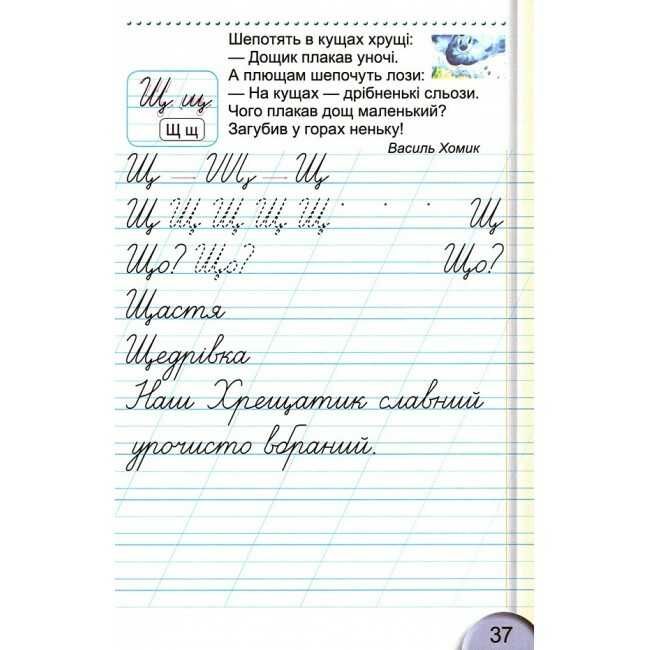 Шепотять в кущах хрущі:
— Дощик плакав уночі.
А плющам шепочуть лози:
— На кущах — дрібненькі сльози.
Чого плакав дощ маленький?
Загубив у горах неньку!
Василь Хомик
Щ щ
Щ щ
Щ Щ
Щ Щ Щ Щ Щ Щ
Що? Що? Що?
Щастя
Щедрівка
Наш Хрещатик славний
урочисто вбраний.
37